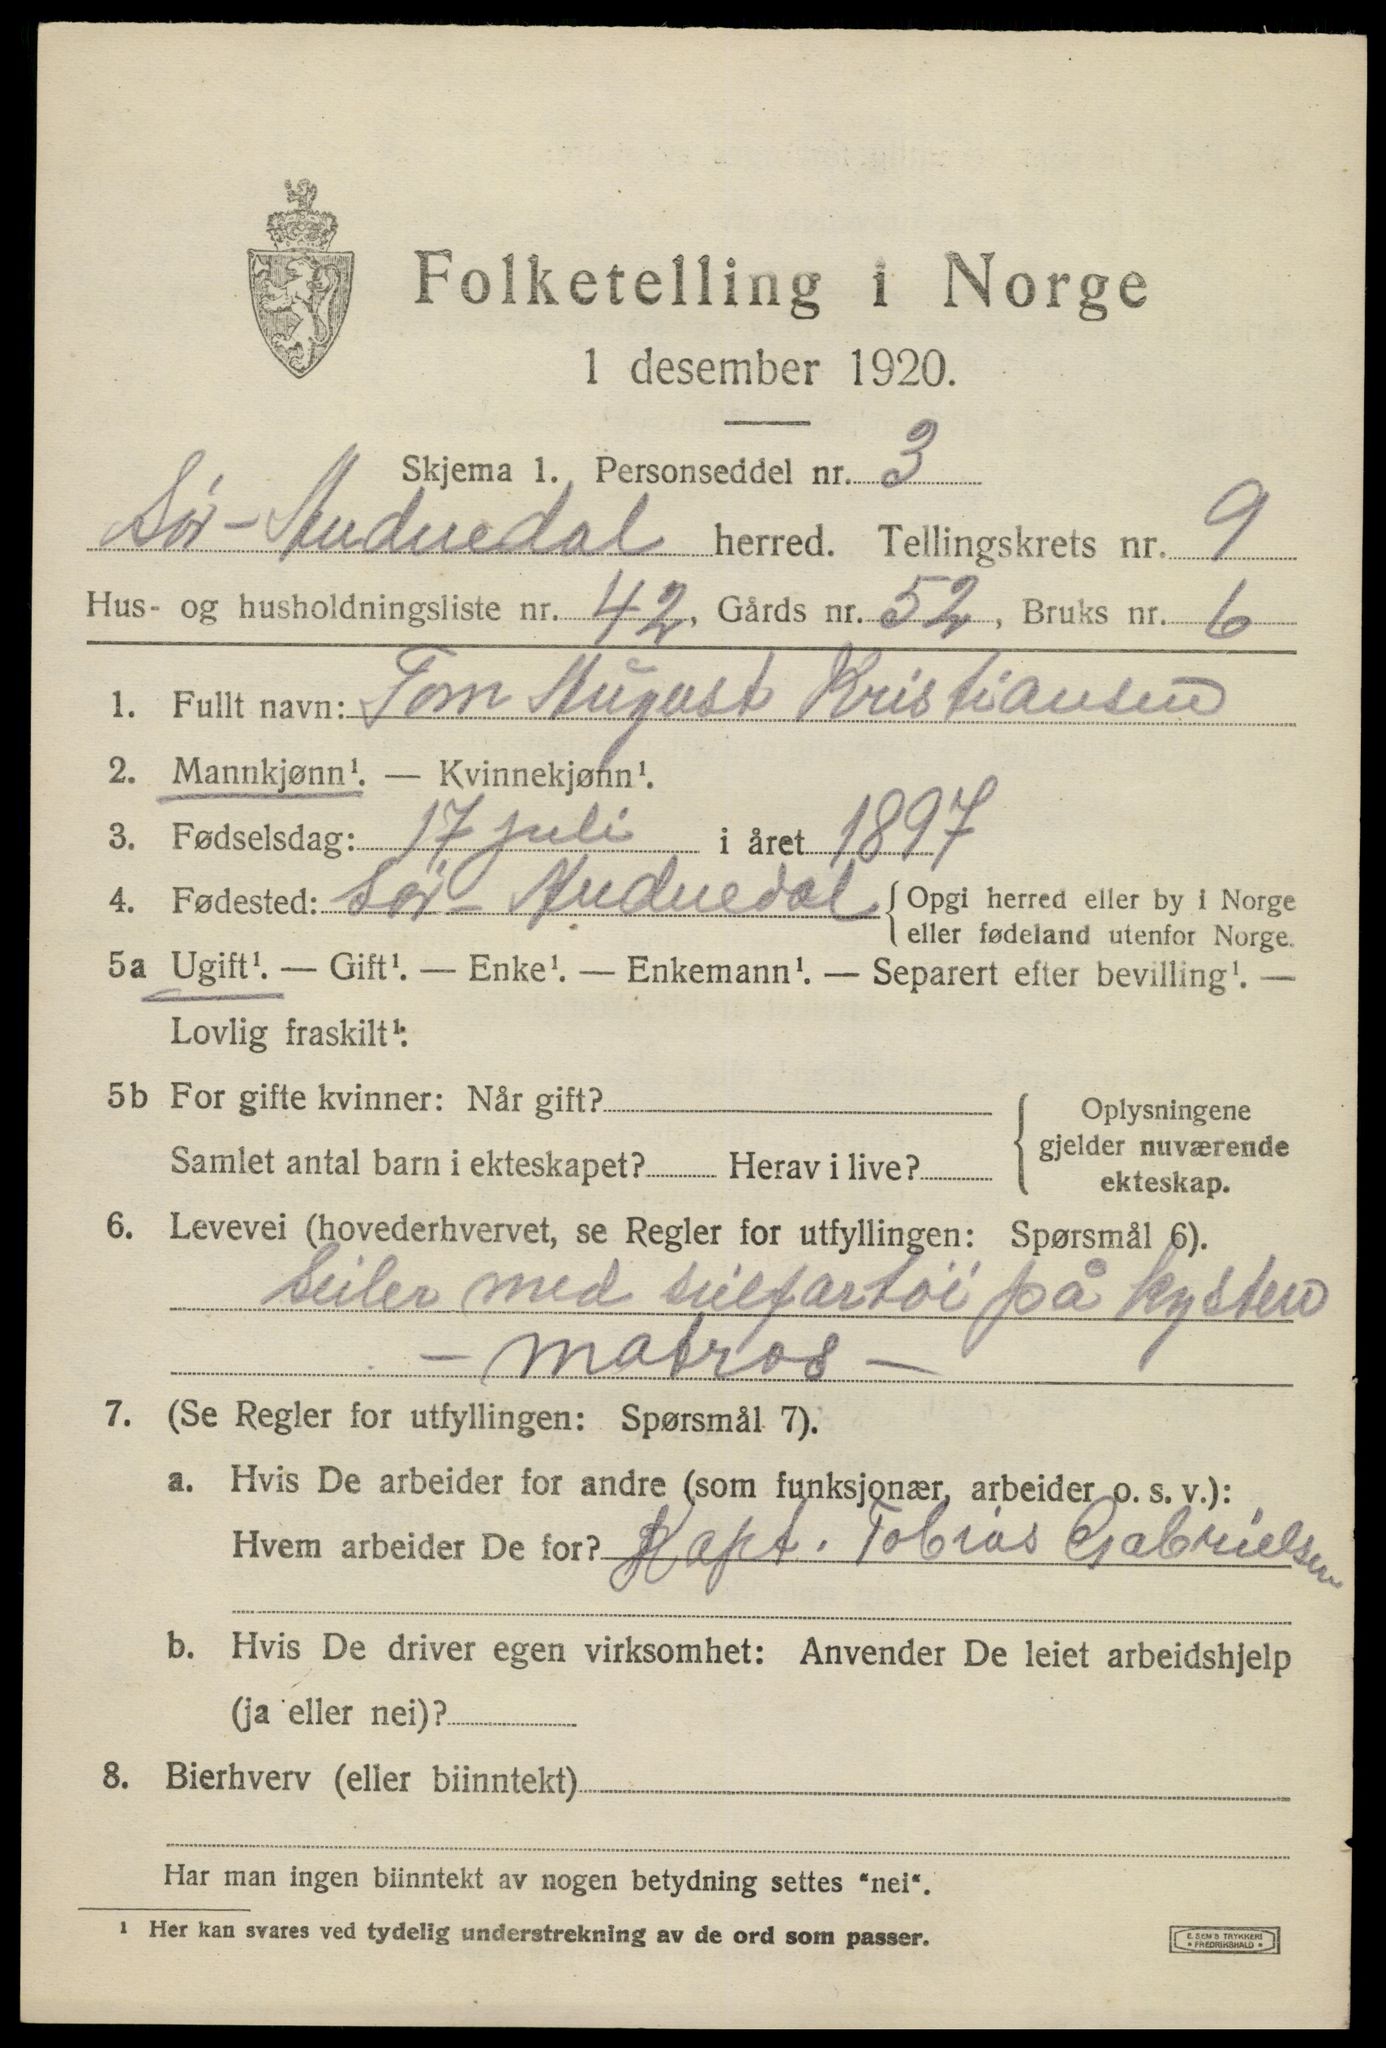 Folketelling i Norge
1 desember 1920.
Skjema 1. Personseddel nr. 3
Sør-Audnedal herred. Tellingskrets nr. 9
Hus- og husholdningsliste nr. 42, Gårds nr. 52, Bruks nr. 6
1. Fullt navn: Tom August Kristiansen
2. Mannkjønn¹. — Kvinnekjønn¹.
3. Fødselsdag: 17 juli i året 1897
4. Fødested: Sør-Audnedal { Opgi herred eller by i Norge
eller fødeland utenfor Norge.
5a Ugift¹. — Gift¹. — Enke¹. — Enkemann¹. — Separert efter bevilling¹. —
Lovlig fraskilt¹:
5b For gifte kvinner: Når gift?
Samlet antal barn i ekteskapet? Herav i live?
{ Oplysningene
gjelder nuværende
ekteskap.
6. Levevei (hovederhvervet, se Regler for utfyllingen: Spørsmål 6).
Seiler med seilfartøi på kysten
- matros -
7. (Se Regler for utfyllingen: Spørsmål 7).
a. Hvis De arbeider for andre (som funksjonær, arbeider o. s. v.):
Hvem arbeider De for? Kapt. Tobias Gabrielsen
b. Hvis De driver egen virksomhet: Anvender De leiet arbeidshjelp
(ja eller nei)?
8. Bierhverv (eller biinntekt)
Har man ingen biinntekt av nogen betydning settes "nei".
¹ Her kan svares ved tydelig understrekning av de ord som passer.
E. SEM'S TRYKKERI
• FREDRIKSHALD •